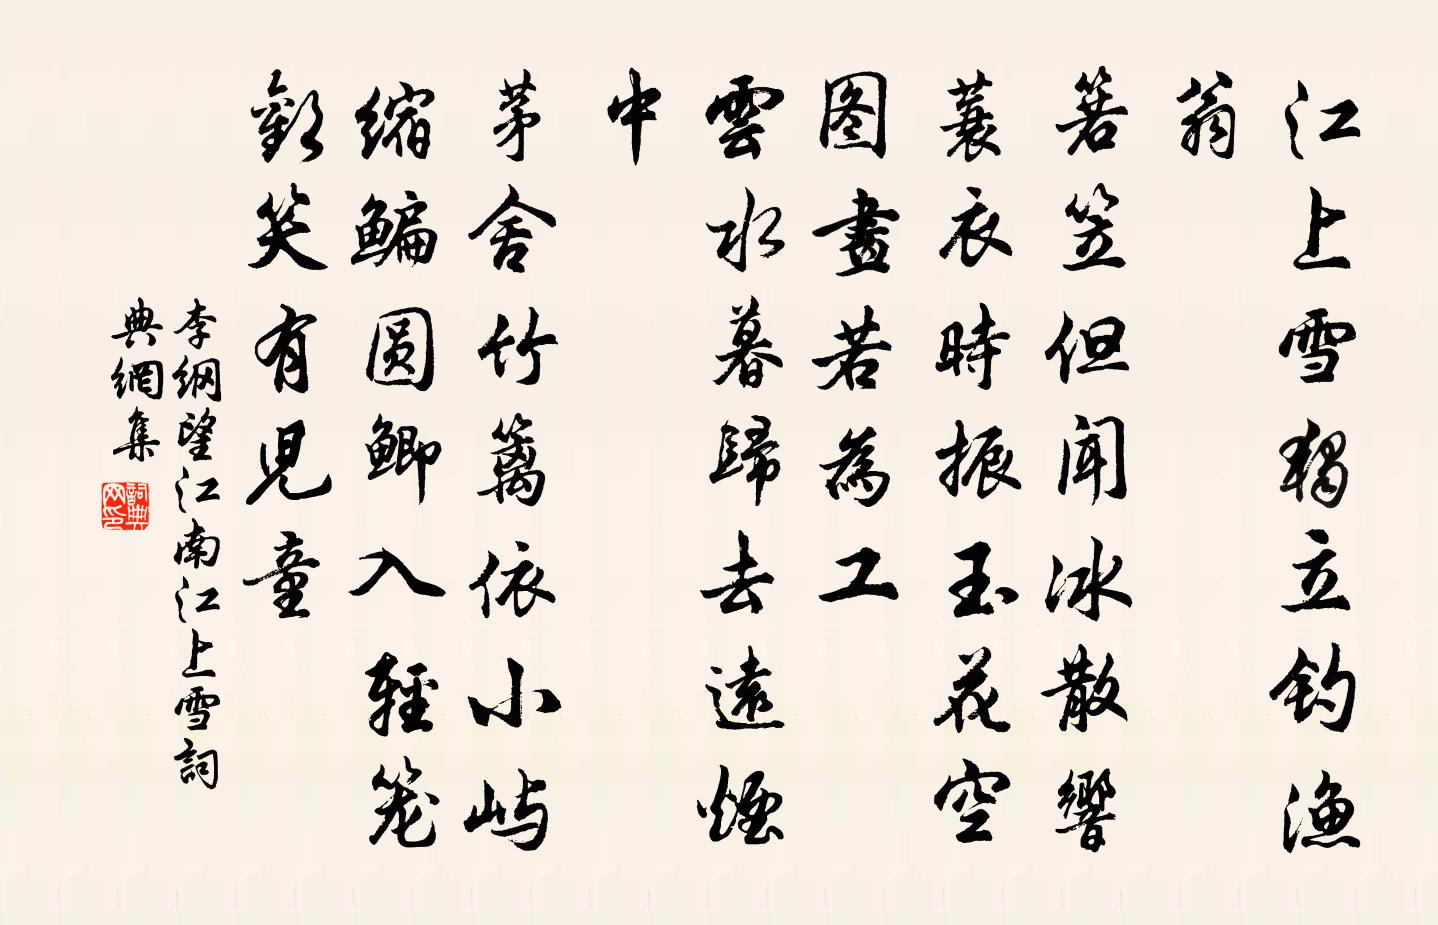 江上雪獨立钓漁
翁
箬笠但闻冰散響
蓑衣時振玉花空
图畫若為工
雲水暮歸去遠煙
中
茅舍竹篱依小屿
缩鳊圆鲫入輕笼
歡笑有児童
李纲望江南江上雪詞
典網集
詞典网印